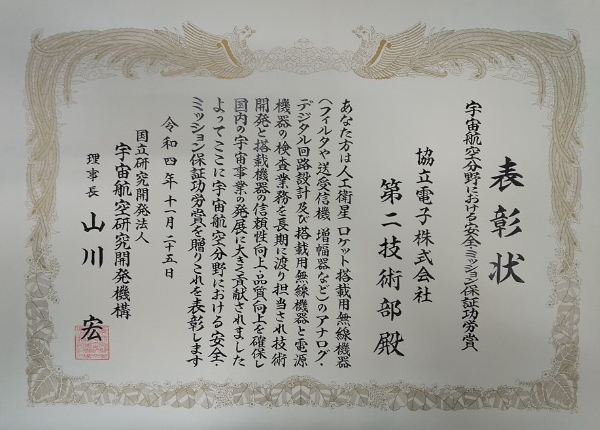 表彰状
宇宙航空分野における安全・ミッション保証功労賞
協立電子株式会社
第二技術部殿
あなた方は人工衛星 ロケット搭載用無線機器
(フィルタや送受信機 増幅器など)のアナログ・
デジタル回路設計及び搭載用無線機器と電源
機器の検査業務を長期に渡り担当され技術
開発と搭載機器の信頼性向上・品質向上を確保し
国内の宇宙事業の発展に大きく貢献されました
よってここに宇宙航空分野における安全・
ミッション保証功労賞を贈りこれを表彰します
令和四年十一月二十五日
国立研究開発法人
宇宙航空研究開発機構
理事長 山川 宏